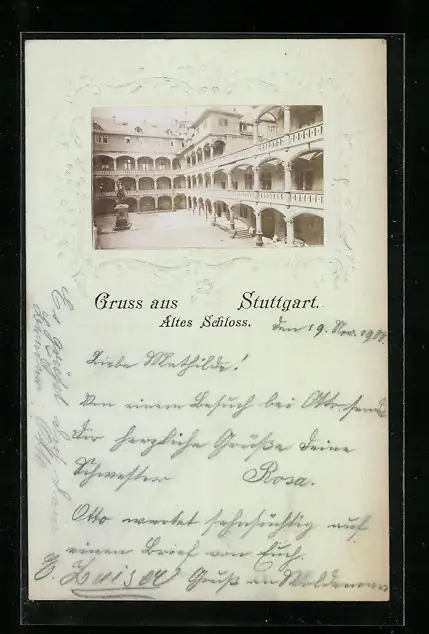 Gruss aus Stuttgart.
Altes Schloss.
den 19. Nov. 1900.
Liebe Mathilde!
Von einem Besuch bei Otto sende
Dir herzliche Grüße Deine
Schwester Rosa.
Otto wartet sehnsüchtig auf
einen Brief von Euch.
Gruß an Woldemar
Es grüßt